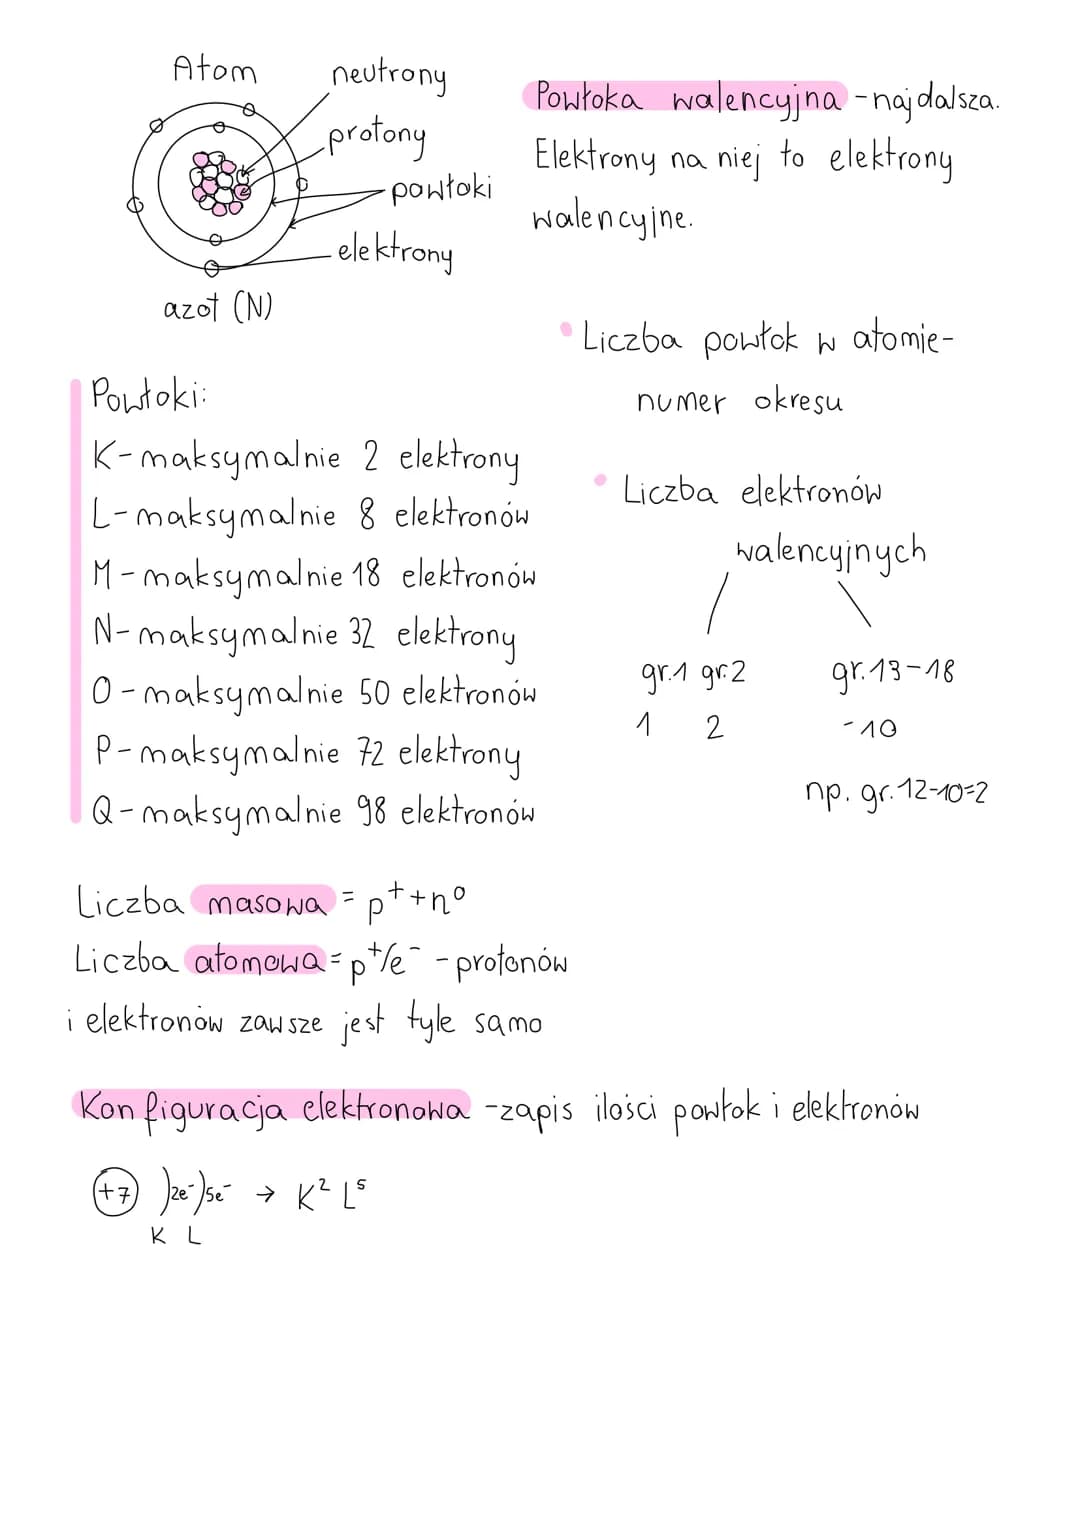 Atom
neutrony
protony
powłoki
elektrony
azot (N)
Powłoka walencyjna - najdalsza.
Elektrony na niej to elektrony
walencyjne.
Powłoki:
K - maksymalnie 2 elektrony
L - maksymalnie 8 elektronów
M - maksymalnie 18 elektronów
N - maksymalnie 32 elektrony
O - maksymalnie 50 elektronów
P - maksymalnie 72 elektrony
Q - maksymalnie 98 elektronów
• Liczba powłok w atomie -
numer okresu
• Liczba elektronów
walencyjnych
gr.1 gr.2 gr.13-18
1 2 -10
np. gr.12-10=2
Liczba masowa = p⁺+n⁰
Liczba atomowa = p⁺/e⁻ - protonów
i elektronów zawsze jest tyle samo
Konfiguracja elektronowa - zapis ilości powłok i elektronów
+7 )2e⁻)5e⁻ → K² L⁵
K L